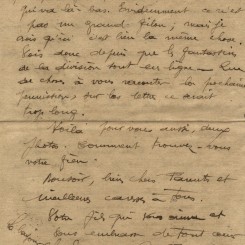 qui va là-bas. Evidemment ce n'est
pas un grand filon, mais je
crois qu'ici c'est bien la même chose.
Sois donc depuis que le fantassin
de la division sont en ligne. Que
de choses à vous raconter la prochaine
permission, sur les lettre ce serait
trop long.
Voilà pour vous aussi, deux
photos. Comment trouvez-vous
votre fiston.
Bonsoir, bien chers Parents et
meilleures caresses à Tous.
Votre fils qui vous aime et
vous embrasse de tout cœur